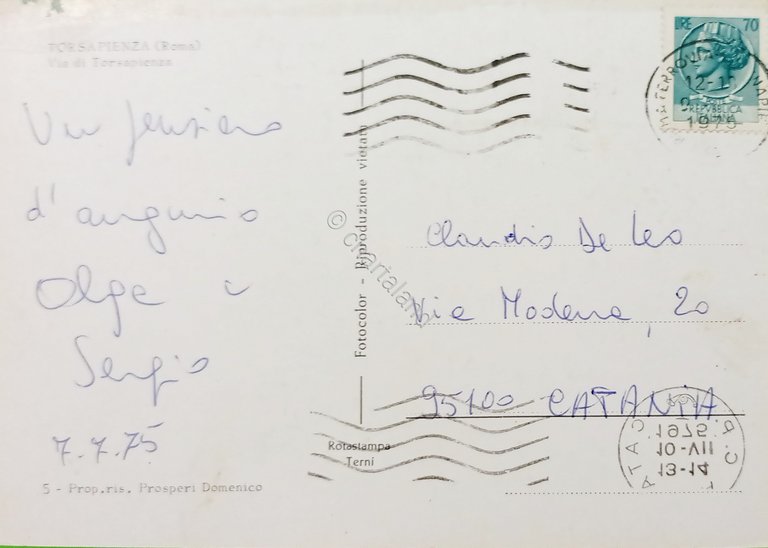 TORSAPIENZA (Roma)
Via di Torsapienza
Un pensiero
d'augurio
Olga e
Sergio
7.7.75
5 - Prop. ris. Prosperi Domenico
Fotocolor - Riproduzione vietata
Rotastampa
Terni
© chartaland
LIRE 70
REPUBBLICA
ITALIANA
12-1
1975
Claudio De Leo
Via Modena, 20
95100 CATANIA
13-14
10-VII
1975